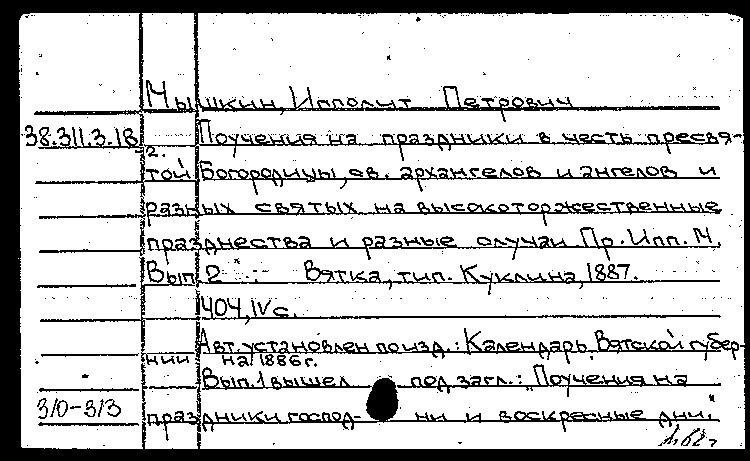 Мышкин, Ипполит Петрович
38.311.3.18 Поучения на праздники в честь пресвя-
2.
той Богородицы, св. архангелов и ангелов и
разных святых на высокоторжественные
празднества и разные случаи Пр. Ипп. М.
Вып. 2 -:- Вятка, тип. Куклина, 1887.
404, IV с.
Авт. установлен по изд.: Календарь Вятской губер-
нии на 1886 г.
Вып. 1 вышел под загл.: "Поучения на
310-313 праздники господ- ни и воскресные дни."